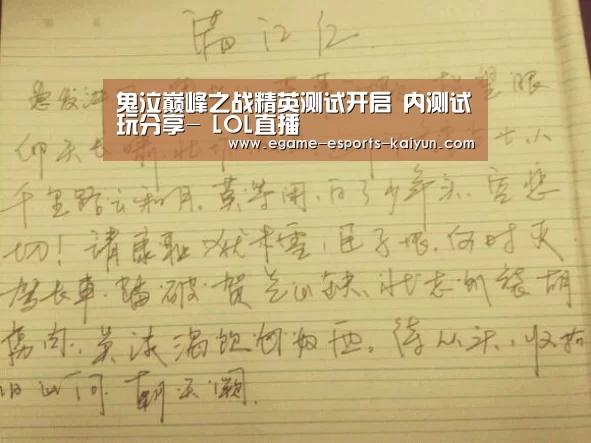 满江红
怒发冲 望眼
仰天长啸
千里路云和月,莫等闲,白了少年头,空悲
鬼泣巅峰之战精英测试开启 内测试
玩分享- LOL直播
www.egame-esports-kaiyun.com
切!靖康耻,犹未雪,臣子恨,何时灭
驾长车,踏破贺兰山缺,壮志饥餐胡
虏肉,笑谈渴饮匈奴血,待从头,收拾
旧山河,朝天阙.